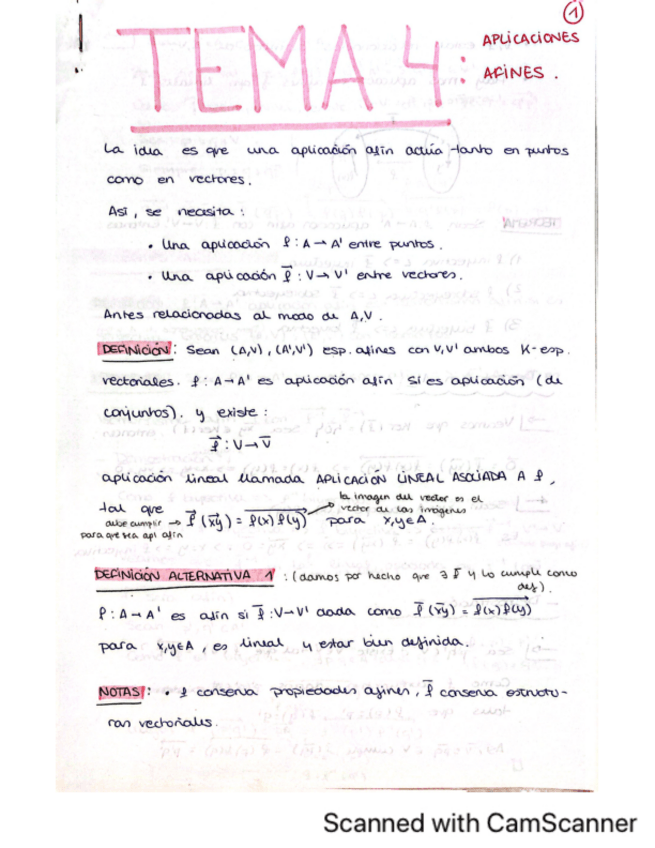 1
TEMA 4: APLICACIONES
AFINES.
La idea es que una aplicación afín actúa tanto en puntos
como en vectores.
Así, se necesita:
• Una aplicación f: A → A' entre puntos.
• Una aplicación f⃗: V → V' entre vectores.
Antes relacionados al modo de A,V.
DEFINICIÓN: Sean (A,V), (A',V') esp. afines con V,V' ambos K-esp.
vectoriales. f: A → A' es aplicación afín si es aplicación (de
conjuntos). y existe:
f⃗: V → V⃗
aplicación lineal llamada APLICACIÓN LINEAL ASOCIADA A f,
la imagen del vector es el
vector de las imágenes
tal que
debe cumplir → f⃗(xy⃗) = f(x)f(y)⃗ para x,y∈A.
para que sea apl afín
DEFINICIÓN ALTERNATIVA 1: (damos por hecho que ∃ f⃗ y lo cumple como
def).
f: A → A' es afín si f⃗: V → V' dada como f⃗(xy⃗) = f(x)f(y)⃗
para x,y∈A, es lineal y estar bien definida.
NOTAS: • f conserva propiedades afines, f⃗ conserva estructu-
ras vectoriales.
Scanned with CamScanner